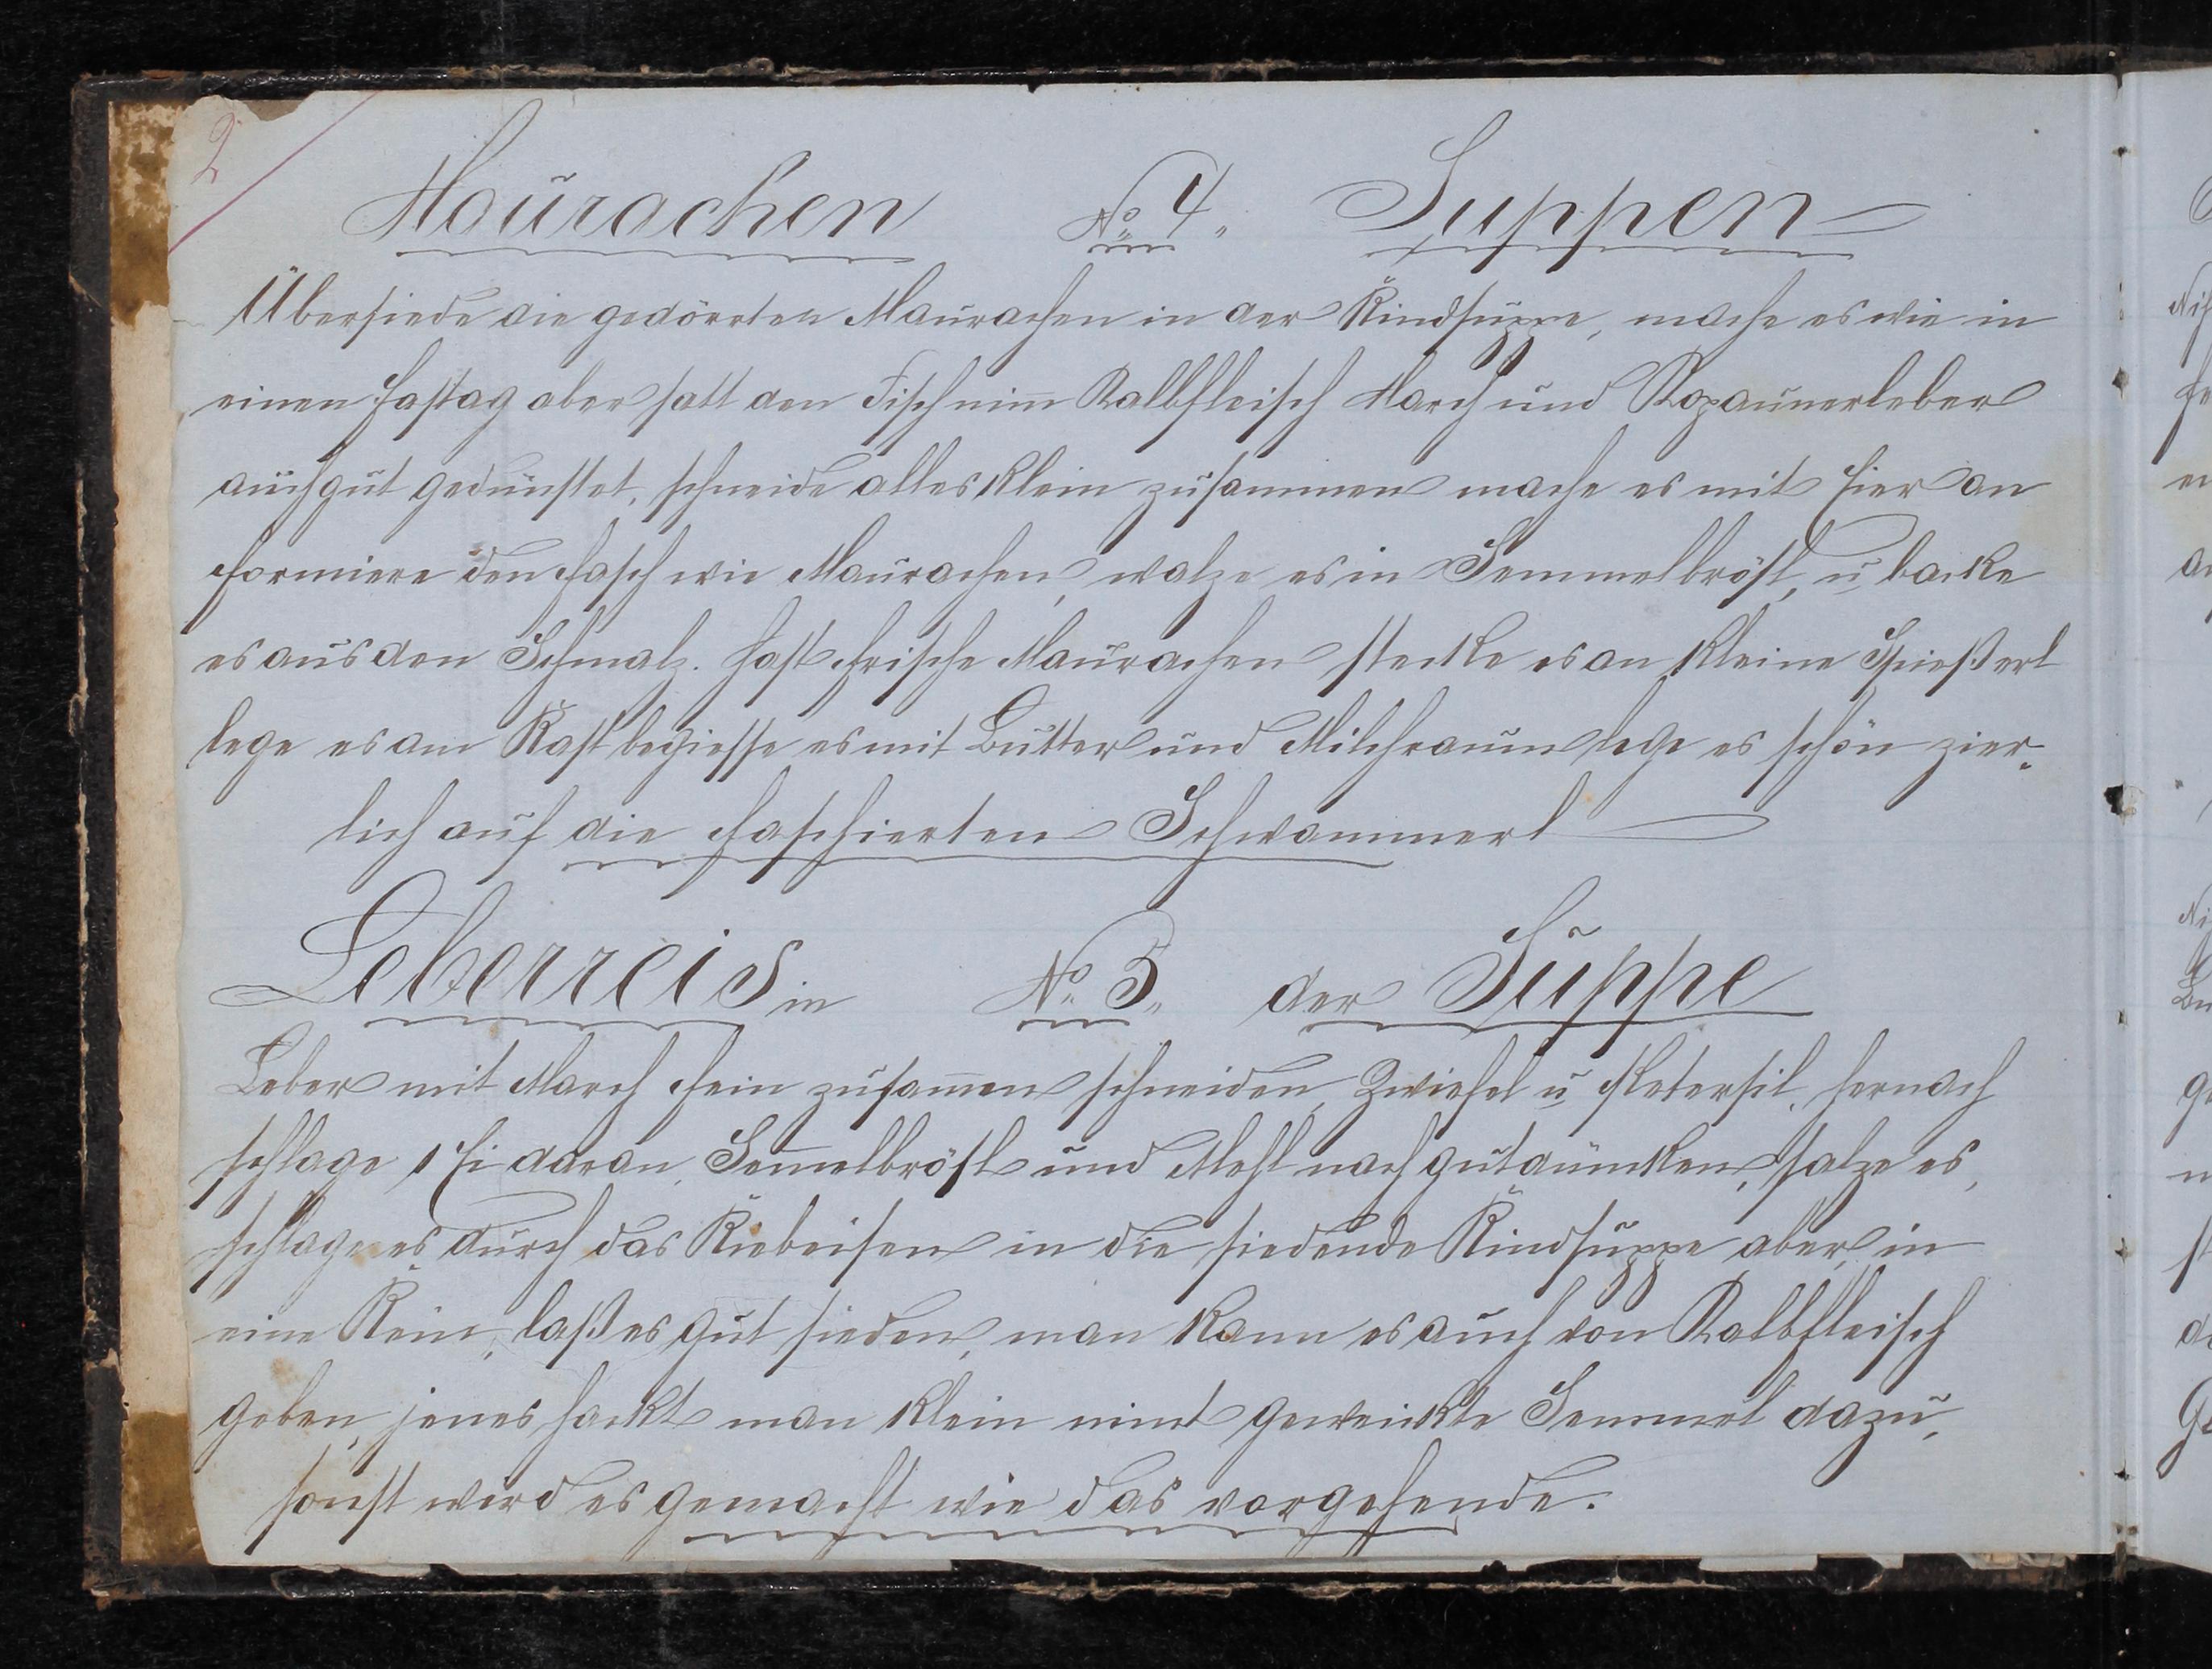 2
Maurachen No 4. Suppen
Übersiede die gedörrten Maurachen in der Rindsuppe, mache es wie in
einen Fasttag aber statt den Fisch nim̄ Kalbfleisch March und Kopaunerleber
auch gut gedünstet, schneide alles klein zusammen mache es mit Eier an
formiere den Fasch wie Maurachen, walze es in Semmelbrösl, u backe
es aus den Schmalz. Hast frische Maurachen stecke es an kleine Spießerl
lege es am Rost begiesse es mit Butter und Milchraum lege es schön zier-
lich auf die faschierten Schwammerl
Leberreis in No 5. der Suppe
Leber mit March fein zusam̄en schneiden, Zwiefel u Petersil, hernach
schlage 1 Ei daran, Sem̄elbrösl und Mehl nach gutdüncken, salze es,
schlage es durch das Riebeisen in die siedende Rindsuppe aber in
eine Rein, laß es gut sieden, man kann es auch von Kalbfleisch
geben, jenes hackt man klein nimt geweickte Semmel dazu,
sonst wird es gemacht wie das vorgehende.